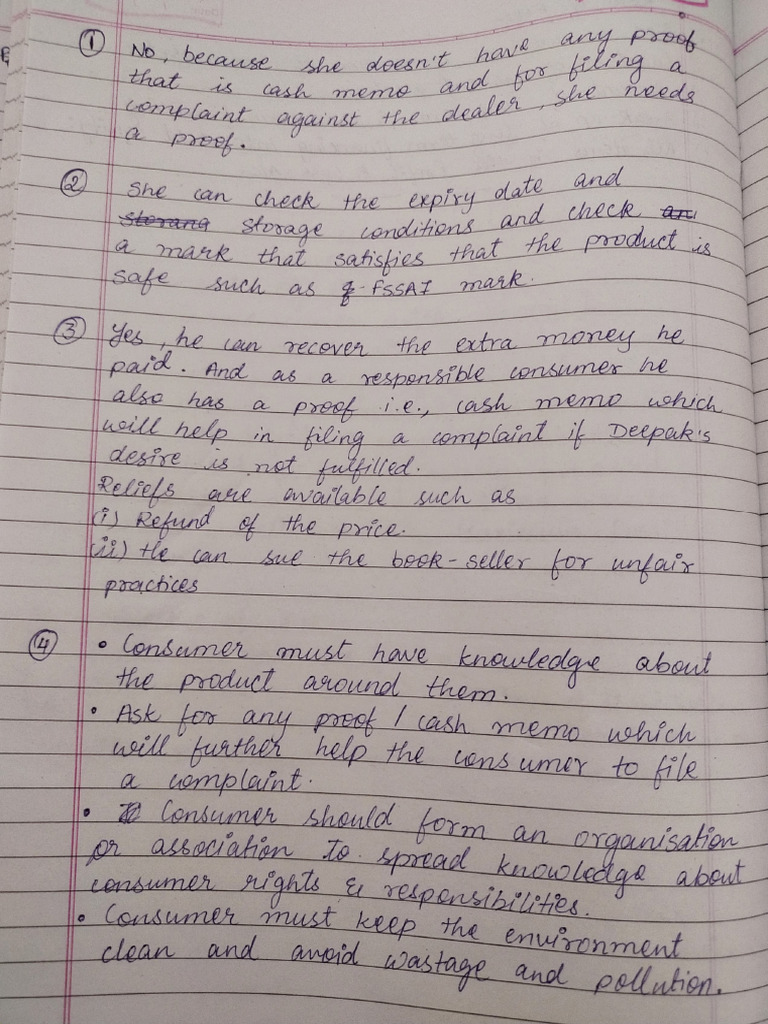 ① No, because she doesn't have any proof
that is cash memo and for filing a
complaint against the dealer, she needs
a proof.
② She can check the expiry date and
storage conditions and check
a mark that satisfies that the product is
safe such as FSSAI mark.
③ Yes, he can recover the extra money he
paid. And as a responsible consumer he
also has a proof i.e., cash memo which
will help in filing a complaint if Deepak's
desire is not fulfilled.
Reliefs are available such as
(i) Refund of the price.
(ii) He can sue the book-seller for unfair
practices
④ • Consumer must have knowledge about
the product around them.
• Ask for any proof / cash memo which
will further help the consumer to file
a complaint.
• Consumer should form an organisation
or association to spread knowledge about
consumer rights & responsibilities.
• Consumer must keep the environment
clean and avoid wastage and pollution.